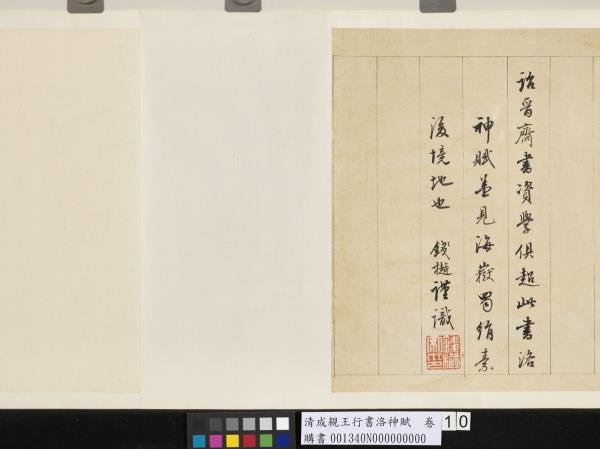 詒晉齋書資學俱超此書洛
神賦並見海嶽蜀絹素
後境地也
錢樾謹識
清成親王行書洛神賦 卷 10
購書 001340N000000000